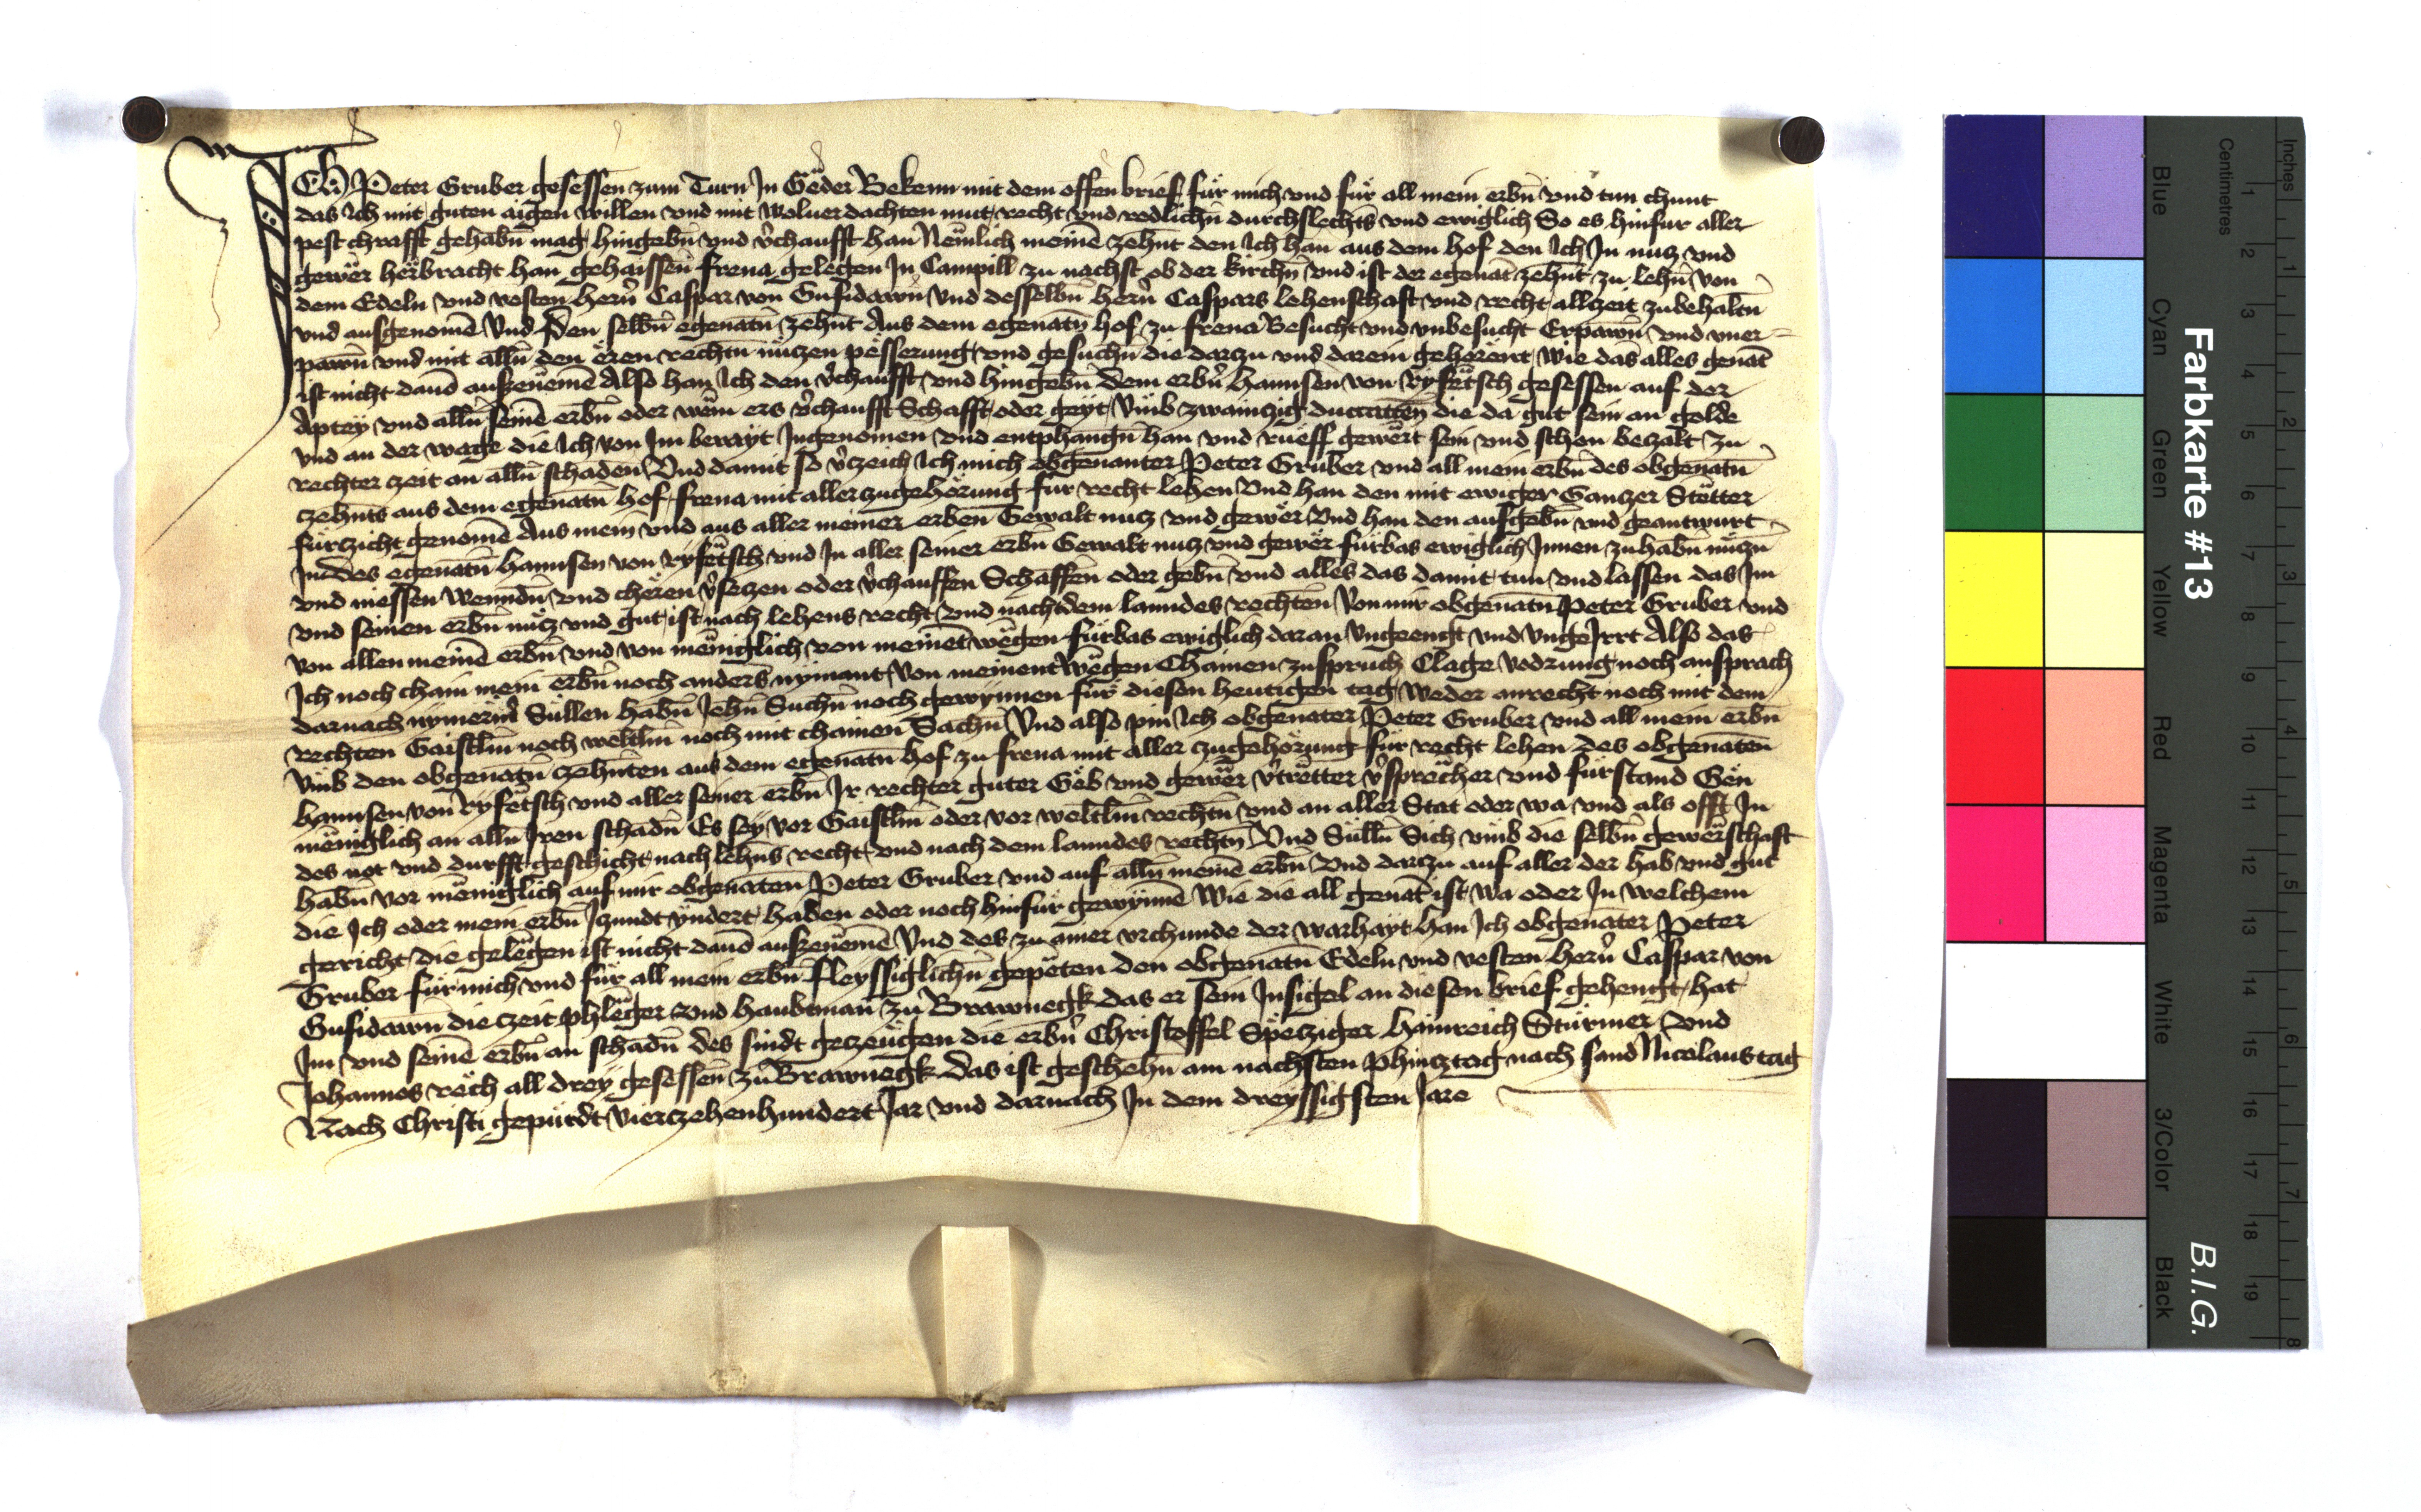 Ich Peter Gruber gesessen zum Turn Jn Geder Bekenn mit dem offen brief für mich vnd für all mein erbn̄ vnd tun chunt
das Jch mit guten aigen willen vnd mit woluerdachten mut recht vnd redlichn̄ durchslechts vnd ewiglich So es hinfur aller
pest chrafft gehabn̄ mag hingebn̄ vnd v̓chaufft han Nemlich meinē zehn̄t den Jch han aus dem hof den Jch Jn nutz vnd
gewër herbracht han gehaissen̄ frena gelegen Jn Campill zu nachst ob der kirchn̄ vnd ist der egenāt zehn̄t zu lehn̄ von
dem Edeln vnd vesten hern̓ Caspar von Gufidawn̄ vnd desselbn̄ hern̓ Caspars lehenschaft vnd recht allczeit zubehaltn̄
vnd ausgenomē Vnd den selbn̄ egenātn̄ zehn̄t Aus dem egenātn̄ hof zu frena Besucht vnd vnbesucht Erpawn̄ vnd vner-
pawn̄ vnd mit alln̄ den ëren rechtn̄ nützen pësserung vnd gesuchn̄ die darczu vnd darein gehörent wie das alles genāt
ist nicht dauō auszenemē Also han Jch den v̓chaufft vnd hingebn̄ dem erbn̓ hannsen von Ryfëtsch gesessen auf der
Aptey vnd alln̄ seinē erbn̄ oder wëm ers v̓chaufft Schafft oder geyt Vmb zwainczig ducaten die da gut sein an golde
vnd an der wage die Jch von Jm berayt Jngenomen vnd entphangn̄ han vnd rueff gewërt sein vnd schon beczalt zu
rechter czeit an alln̄ schaden Vnd damit so v̓czeich Jch mich obgenanter Peter Gruber vnd all mein erbn̄ des obgenātn̄
czehnts aus dem egenātn̄ hof frena mit aller zugehörung für recht lehen Vnd han den mit ewiger Ganczer Stëtter
fürczicht genomē Aus mein vnd aus aller meiner erben Gewalt nutz vnd gewër Vnd han den aufgebn̄ vnd geantwurt
Jn des egenātn̄ hannsen von Ryfëtsch vnd Jn aller seiner erbn̄ Gewalt nutz vnd gewër fürbas ewiglich Jnnen zuhabn̄ nützn̄
vnd niessen wenndn̄ vnd chëren v̓seczen oder v̓chauffen Schaffen oder gebn̄ vnd alles das damit tun vnd lassen das Jm
vnd seinen erbn̄ nütz vnd gut ist nach lehens recht vnd nach dem lanndes rechten Von mir obgenātn̄ Peter Gruber vnd
von allen meinē erbn̄ vnd von mëniglich von meinet wëgen fürbas ewiglich daran Vngeengt vnd vngeJrrt Also das
Jch noch chain mein erbn̄ noch anders nyemant von meinent wëgen Chainen zuspruch Clage vodrung noch ansprach
darnach nymerm̓ Süllen habn̄ Jehn̄ Suchn̄ noch gewynnen für diesen heutigen tag weder anrecht noch mit dem
rechten Gaistlīm noch weltlīm noch mit chainen Sachn̄ Vnd also pin Jch obgenāter Peter Gruber vnd all mein erbn̄
Vmb den obgenātn̄ czehnten aus dem egenātn̄ hof zu frena mit aller czugehörung für recht lehen des obgenāten
hannsen von Ryfëtsch vnd aller seiner erbn̄ Jr rechter guter Gëb vnd gewër v̓trëtter v̓sprëcher vnd fürstand Gën
mëniglich an alln̄ Jren schadn̄ Es sey vor Gaistlīm oder vor weltlīm rechtn̄ vnd an aller Stat oder wa vnd als offt Jn
des not vnd durfft geschicht nach lehn̄s recht vnd nach dem lanndes rechtn̄ Vnd Süllen Sich vmb die selbn̄ gewërschaft
habn̄ vor mëniglich auf mir obgenāten Peter Gruber vnd auf alln̄ meinē erbn̄ Vnd darczu auf aller der hab vnd gut
die Jch oder mein erbn̄ Jczundt yndert haben oder noch hinfür gewynnē wie die all genāt ist wa oder Jn welchem
gericht die gelëgen ist nicht dauō auszenemē Vnd des zu ainer vrchunde der warhayt han Jch obgenāter Peter
Gruber für mich vnd für all mein erbn̄ fleyssiglichn̄ gepëten den obgenātn̄ Edeln vnd vesten hern̓ Caspar von
Gufidawn̄ die czeit phlëger vnd haubtman̄ zu Brawnegk das er sein Jnsigel an diesen brief gehengt hat
Jm vnd seinē erbn̄ an schadn̄ des sindt geczeügen die erbn̓ Christoffel Spëcziger hainreich Stürmer vnd
Johannes rëch all drey gesessen̄ zu Brawnegk das ist geschehn̄ am nachsten Phincztag nach sand Nicolaus tag
Nach Christi gepurdt Vierczehenhundert Jar vnd darnach Jn dem dreyssigsten Jare
Farbkarte #13
B.I.G.
Centimetres
Inches
Blue
Cyan
Green
Yellow
Red
Magenta
White
3/Color
Black
1 2 3 4 5 6 7 8 9 10 11 12 13 14 15 16 17 18 19
1 2 3 4 5 6 7 8